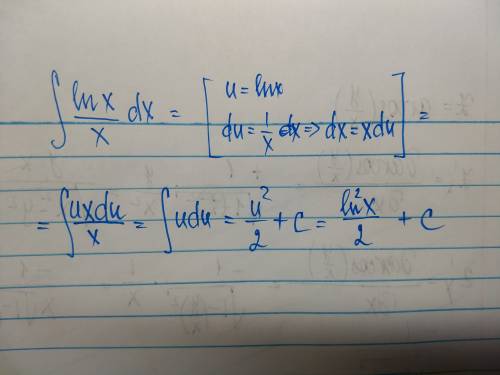 ∫ ln x / x dx = [ u = ln x
du = 1/x dx => dx = x du ] =
= ∫ u x du / x = ∫ u du = u² / 2 + C = ln² x / 2 + C